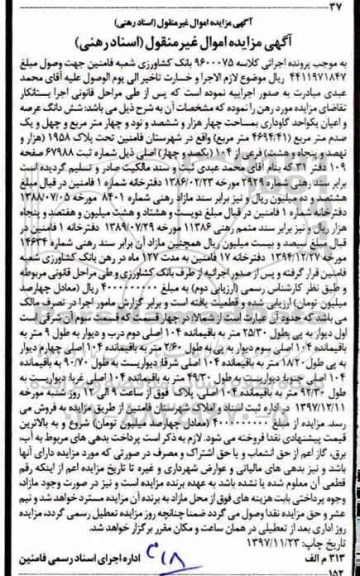 ۳۷
آگهی مزایده اموال غیرمنقول (اسناد رهنی)
آگهی مزایده اموال غیرمنقول (اسناد رهنی)
به موجب پرونده اجرائی کلاسه ۹۶۰۰۰۷۵ بانک کشاورزی شعبه فامنین جهت وصول مبلغ
۴۴۱۱۹۷۱۸۴۷ ریال موضوع لازم الاجرا و خسارت تاخیر الی یوم الوصول علیه آقای محمد
عبدی مبادرت به صدور اجراییه نموده است که پس از طی مراحل قانونی اجرا بستانکار
تقاضای مزایده مورد رهن را نموده که مشخصات آن به شرح ذیل می باشد: شش دانگ عرصه
و اعیان یکواحد گاوداری بمساحت چهار هزار و ششصد و نود و چهار متر مربع و چهل و یک
صدم متر مربع (۴۶۹۴/۴۱ متر مربع) واقع در شهرستان فامنین تحت پلاک ۱۹۵۸ (هزار و
نهصد و پنجاه و هشت) فرعی از ۱۰۴ (یکصد و چهار) اصلی ذیل شماره ثبت ۶۷۹۸۸ صفحه
۱۰۹ دفتر ۴۲۱ که بنام آقای محمد عبدی ثبت و سند مالکیت صادر و تسلیم گردیده است
برابر سند رهنی شماره ۲۹۲۹ مورخه ۱۳۸۶/۰۲/۲۳ دفترخانه شماره ۱ فامنین در قبال مبلغ
هشتصد و ده میلیون ریال و نیز برابر سند مازاد رهنی شماره ۸۴۰۱ مورخه ۱۳۸۸/۰۷/۰۵
دفترخانه شماره ۱ فامنین در قبال مبلغ دویست و هشتاد و هشت میلیون و هفتصد و پنجاه
هزار ریال و نیز برابر سند متمم رهنی ۱۱۳۸۶ مورخه ۱۳۸۹/۰۷/۲۹ دفترخانه ۱ فامنین در
قبال مبلغ سیصد و بیست میلیون ریال همچنین مازاد آن برابر سند رهنی شماره ۱۴۶۳۴
مورخه ۱۳۹۴/۱۲/۲۷ دفترخانه ۱۷ فامنین به مدت ۱۲۷ ماه در رهن بانک کشاورزی شعبه
فامنین قرار گرفته و پس از صدور اجرائیه از طرف بانک کشاورزی و طی مراحل قانونی مربوطه
و طبق نظر کارشناس رسمی (ارزیابی دوم) به مبلغ ۴۰۰۰۰۰۰۰۰۰ ریال (معادل چهارصد
میلیون تومان) ارزیابی شده و قطعیت یافته است و برابر گزارش مامور اجرا در تصرف مالک
می باشد که حدود آن عبارت است از شمالا: در چهار قسمت که قسمت سوم آن شرقی است
اول دیوار به پی بطول ۲۵/۳۰ متر به باقیمانده ۱۰۴ اصلی دوم درب و دیوار به طول ۹ متر به
باقیمانده ۱۰۴ اصلی سوم دیوار به پی به طول ۲/۶۰ متر به باقیمانده ۱۰۴ اصلی چهارم دیوار
به پی طول ۱۸/۲۰ متر به باقیمانده ۱۰۴ اصلی شرقا: دیواریست به طول ۹۰/۷۰ به باقیمانده
۱۰۴ اصلی جنوبا: دیواریست به طول ۴۹/۳۰ متر به باقیمانده ۱۰۴ اصلی غربا: دیواریست به
طول ۹۲/۳۰ متر به باقیمانده ۱۰۴ اصلی. پلاک فوق از ساعت ۹ الی ۱۲ روز شنبه مورخه
۱۳۹۷/۱۲/۱۱ در اداره ثبت اسناد و املاک شهرستان فامنین از طریق مزایده به فروش می
رسد. مزایده از مبلغ ۴۰۰۰۰۰۰۰۰۰ (معادل چهارصد میلیون تومان) شروع و به بالاترین
قیمت پیشنهادی نقدا فروخته می شود. لازم به ذکر است پرداخت بدهی های مربوط به آب،
برق، گاز اعم از حق انشعاب و یا حق اشتراک و مصرف در صورتی که مورد مزایده دارای آنها
باشد و نیز بدهی های مالیاتی و عوارض شهرداری و غیره تا تاریخ مزایده اعم از اینکه رقم
قطعی آن معلوم شده یا نشده باشد به عهده برنده مزایده است و نیز در صورت وجود مازاد،
وجوه پرداختی بابت هزینه های فوق از محل مازاد به برنده آن مزایده مسترد خواهد شد و نیم
عشر و حق مزایده نقدا وصول می گردد ضمنا چنانچه روز مزایده تعطیل رسمی گردد، مزایده
روز اداری بعد از تعطیلی در همان ساعت و مکان مقرر برگزار خواهد شد.
تاریخ چاپ: ۱۳۹۷/۱۱/۲۳
۳۱۳ م الف
اداره اجرای اسناد رسمی فامنین
۱۵۲